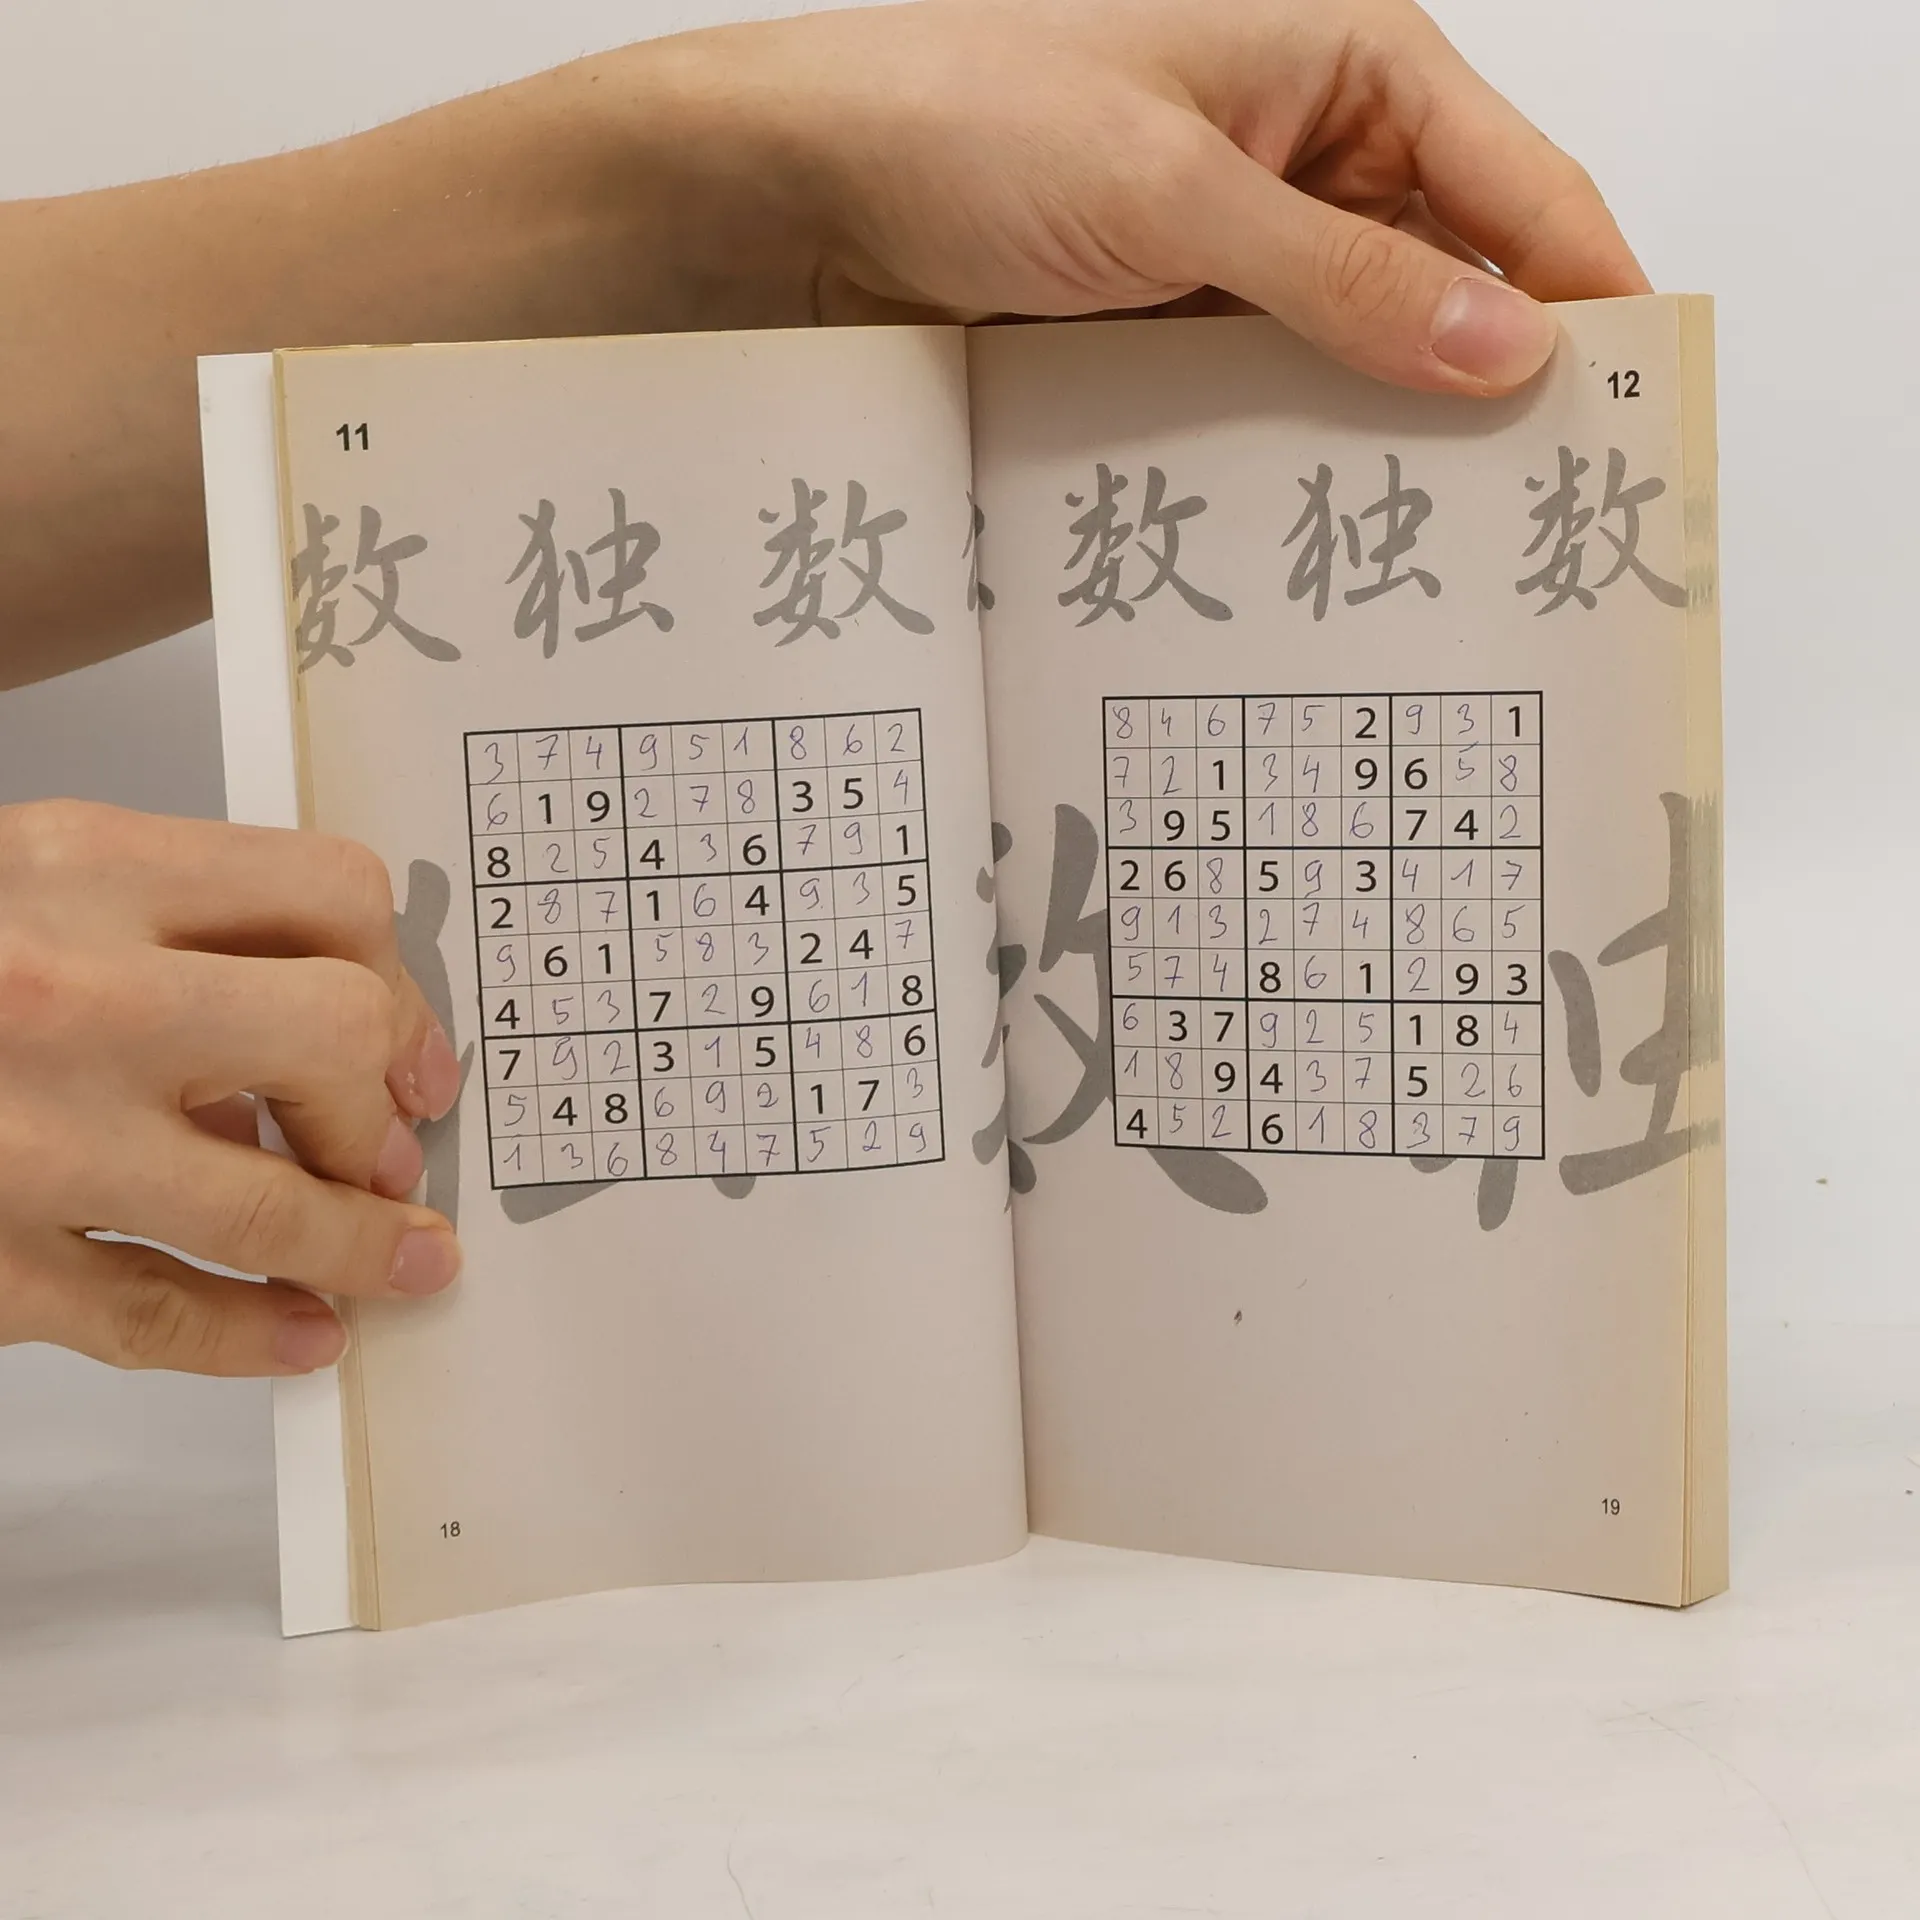 11
数 独 数
3 7 4 9 5 1 8 6 2
6 1 9 2 7 8 3 5 4
8 2 5 4 3 6 7 9 1
2 8 7 1 6 4 9 3 5
9 6 1 5 8 3 2 4 7
4 5 3 7 2 9 6 1 8
7 9 2 3 1 5 4 8 6
5 4 8 6 9 2 1 7 3
1 3 6 8 4 7 5 2 9
18
12
数 独 数
8 4 6 7 5 2 9 3 1
7 2 1 3 4 9 6 5 8
3 9 5 1 8 6 7 4 2
2 6 8 5 9 3 4 1 7
9 1 3 2 7 4 8 6 5
5 7 4 8 6 1 2 9 3
6 3 7 9 2 5 1 8 4
1 8 9 4 3 7 5 2 6
4 5 2 6 1 8 3 7 9
19